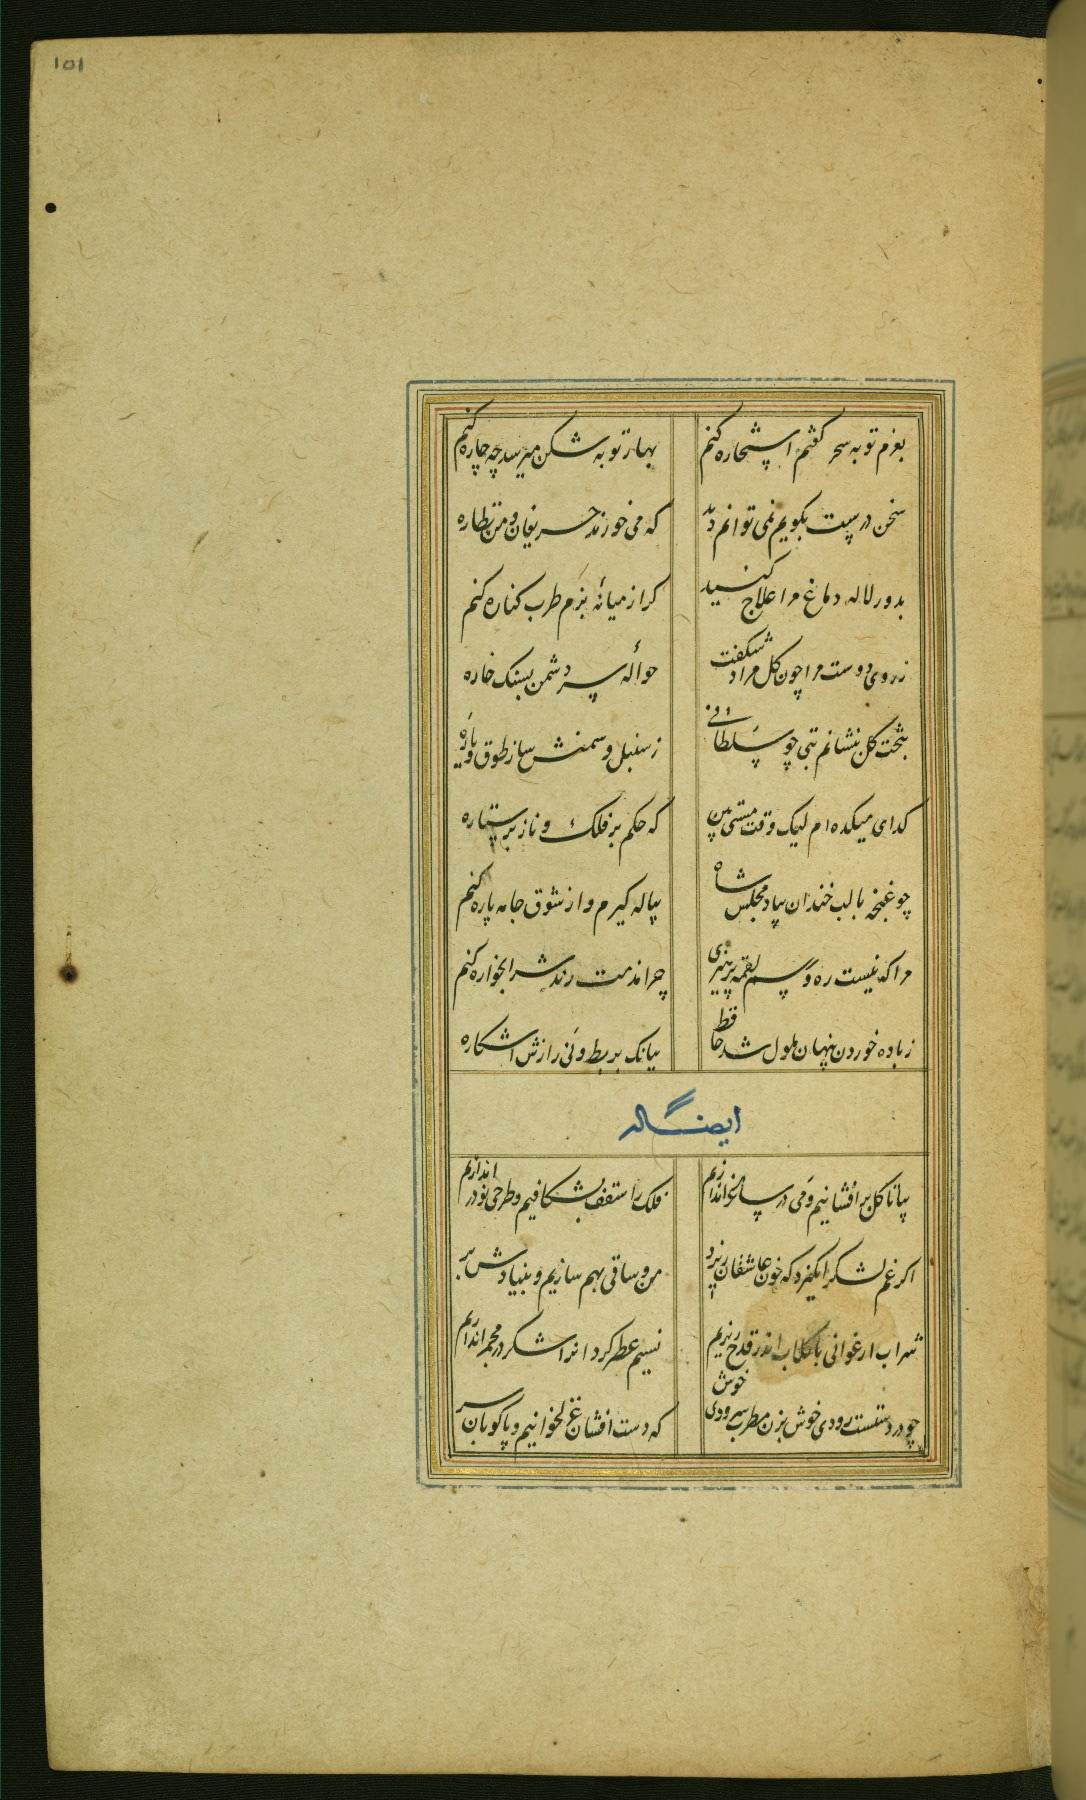 101
بعزم توبه سحر کفتم استخاره کنم
بهار توبه شکن میرسد چه چاره کنم
سخن درست بکویم نمی توانم دید
که می خورند حریفان و من نظاره
بدور لاله دماغ مرا علاج کنید
کر از میانهٔ بزم طرب کناره کنم
ز روی دوست مرا چون کل مراد شکفت
حوالهٔ سر دشمن بسنک خاره
بتخت کل بنشانم بتی چو سلطانی
ز سنبل و سمنش ساز طوق و یاره
کدای میکده ام لیک وقت مستی بین
که حکم بر فلک و ناز بر ستاره
چو غنچه با لب خندان بیاد مجلس شاه
پیاله کیرم و از شوق جامه پاره کنم
مرا که نیست ره و رسم لقمه پرهیزی
چرا مذمت رند شرابخواره کنم
ز باده خوردن پنهان ملول شد حافظ
ببانک بربط و نی رازش آشکاره
ایضا له
بیا تا کل برافشانیم و می در ساغر اندازیم
فلک را سقف بشکافیم و طرحی نو در اندازیم
اکر غم لشکر انکیزد که خون عاشقان ریزد
من و ساقی بهم سازیم و بنیادش بر
شراب ارغوانی با کلاب اندر قدح ریزیم
نسیم عطر کردانرا شکر در مجمر اندازیم
چو در دستست رودی خوش بزن مطرب سرودی خوش
که دست افشان غزل خوانیم و پاکوبان سر